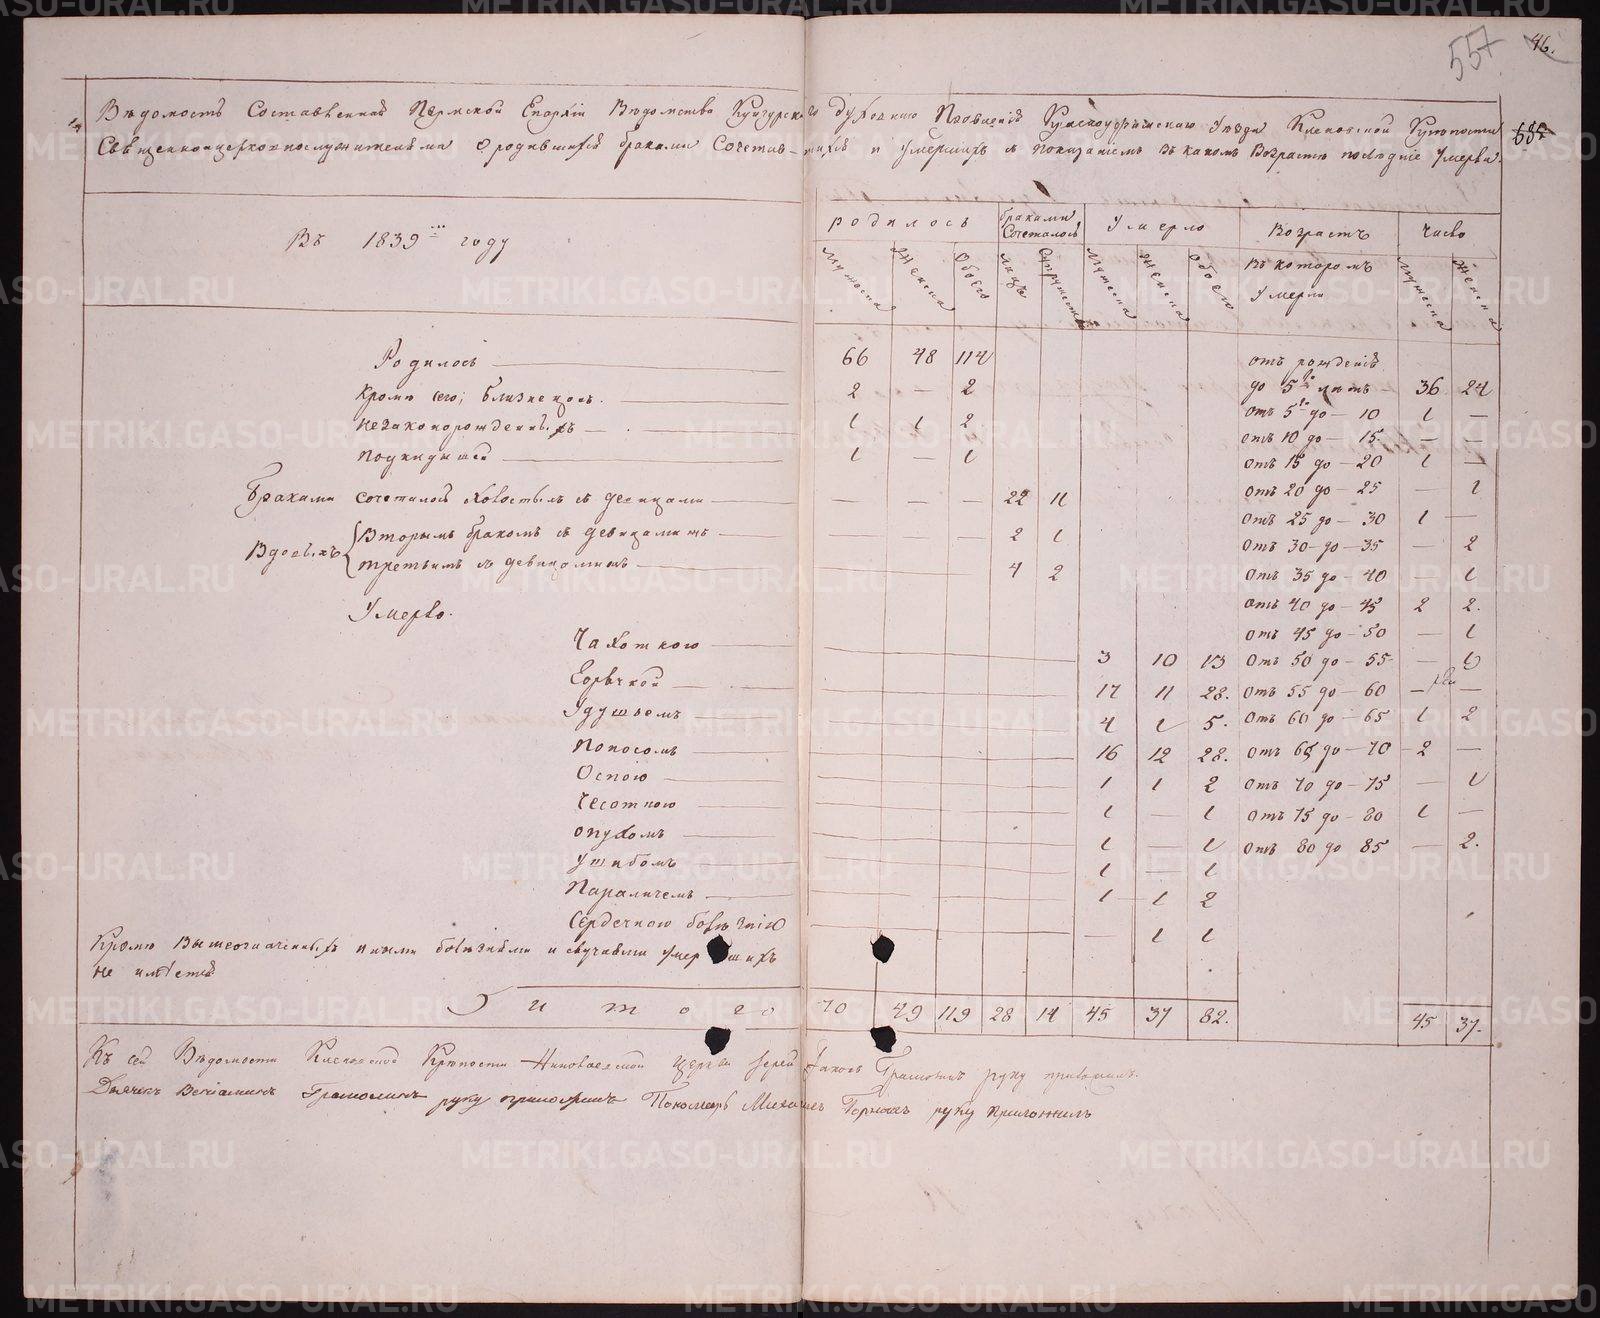 557
46.
Вѣдомость Составленная Пермской Епархіи Вѣдомства Кунгурскаго Духовнаго Правленія Красноуфимскаго Уѣзда Кленовской Крѣпости
Священноцерковнослужителями О родившихся бракомъ Сочетавшихся и Умершихъ съ показаніемъ въ какомъ Возрастѣ послѣдніе Умерли.
Въ 1839 году
родилось | бракомъ Сочеталось | Умерло | Возрастъ въ которомъ Умерли | Число
Мужеска | Женска | Обоего | лицъ | Супружествъ | Мужеска | Женска | Обоего | Мужеска | Женска
Родилось 66 48 114 отъ рожденія
Кромѣ сего; близнецовъ. 2 — 2 до 5 лѣтъ 36 24
незаконорожденныхъ 1 1 2 отъ 5 до — 10 1 —
подкидышей 1 — 1 отъ 10 до — 15 — —
отъ 15 до — 20 1 —
Браками сочеталось холостыхъ съ девицами — — — 22 11 отъ 20 до — 25 — 1
отъ 25 до — 30 1 —
Вдовыхъ Вторымъ бракомъ съ девицами — — 2 1 отъ 30 до — 35 — 2
третьимъ съ девицами 4 2 отъ 35 до — 40 — 1
Умерло. отъ 40 до — 45 2 2.
отъ 45 до — 50 — 1
Чахоткою 3 10 13 отъ 50 до — 55 —
Горячкой 17 11 28. отъ 55 до — 60 — —
Удушьемъ 4 1 5. отъ 60 до — 65 1 2
Поносомъ 16 12 28. отъ 65 до — 70 2 —
Оспою 1 1 2 отъ 70 до — 75 — 1
Чесоткою 1 — 1 отъ 75 до — 80 1 —
опухомъ 1 — 1 отъ 80 до 85 — 2.
Ушибомъ 1 — 1
Параличемъ 1 1 2
Сердечною болѣзнію — 1 1
Кромѣ вышеозначенныхъ иными болѣзнями и случаями умершихъ
не имѣется
Итого 70 49 119 28 14 45 37 82. 45 37.
Къ сей Вѣдомости Кленовской Крѣпости Николаевской церкви Іерей Іаковъ руку приложилъ.
Дьячекъ Веніаминъ руку приложилъ Пономарь Михаилъ руку приложилъ
METRIKI.GASO-URAL.RU